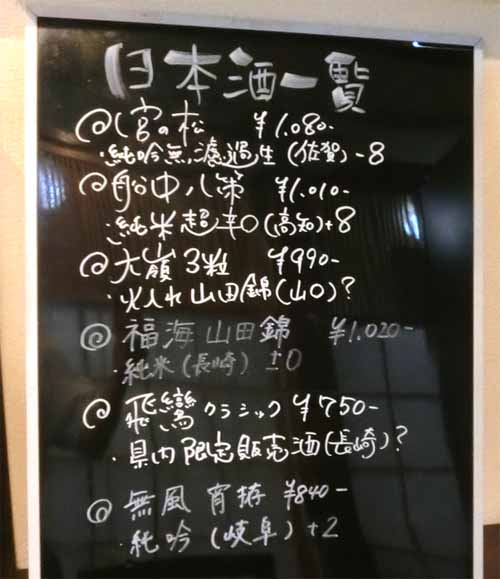 日本酒一覧
@宮の松 ¥1,080-
・純吟無濾過生(佐賀)-8
@船中八策 ¥1,010-
・純米超辛口(高知)+8
@大嶺3粒 ¥990-
・火入れ山田錦(山口)?
@福海 山田錦 ¥1,020-
・純米(長崎)±0
@飛鸞クラシック ¥750-
・県内限定販売酒(長崎)?
@無風 ¥840-
・純吟(岐阜)+2